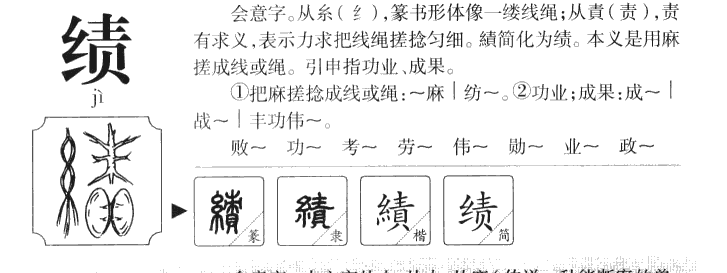 绩
jì
会意字。从糸(纟),篆书形体像一缕线绳;从責(责),责
有求义,表示力求把线绳搓捻匀细。績简化为绩。本义是用麻
搓成线或绳。引申指功业、成果。
①把麻搓捻成线或绳:～麻｜纺～。②功业;成果:成～｜
战～｜丰功伟～。
败～ 功～ 考～ 劳～ 伟～ 勋～ 业～ 政～
績 篆 績 隶 績 楷 绩 简